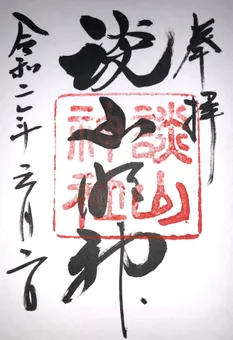 奉拝
談山明神
談山神社
令和二年 元月二日